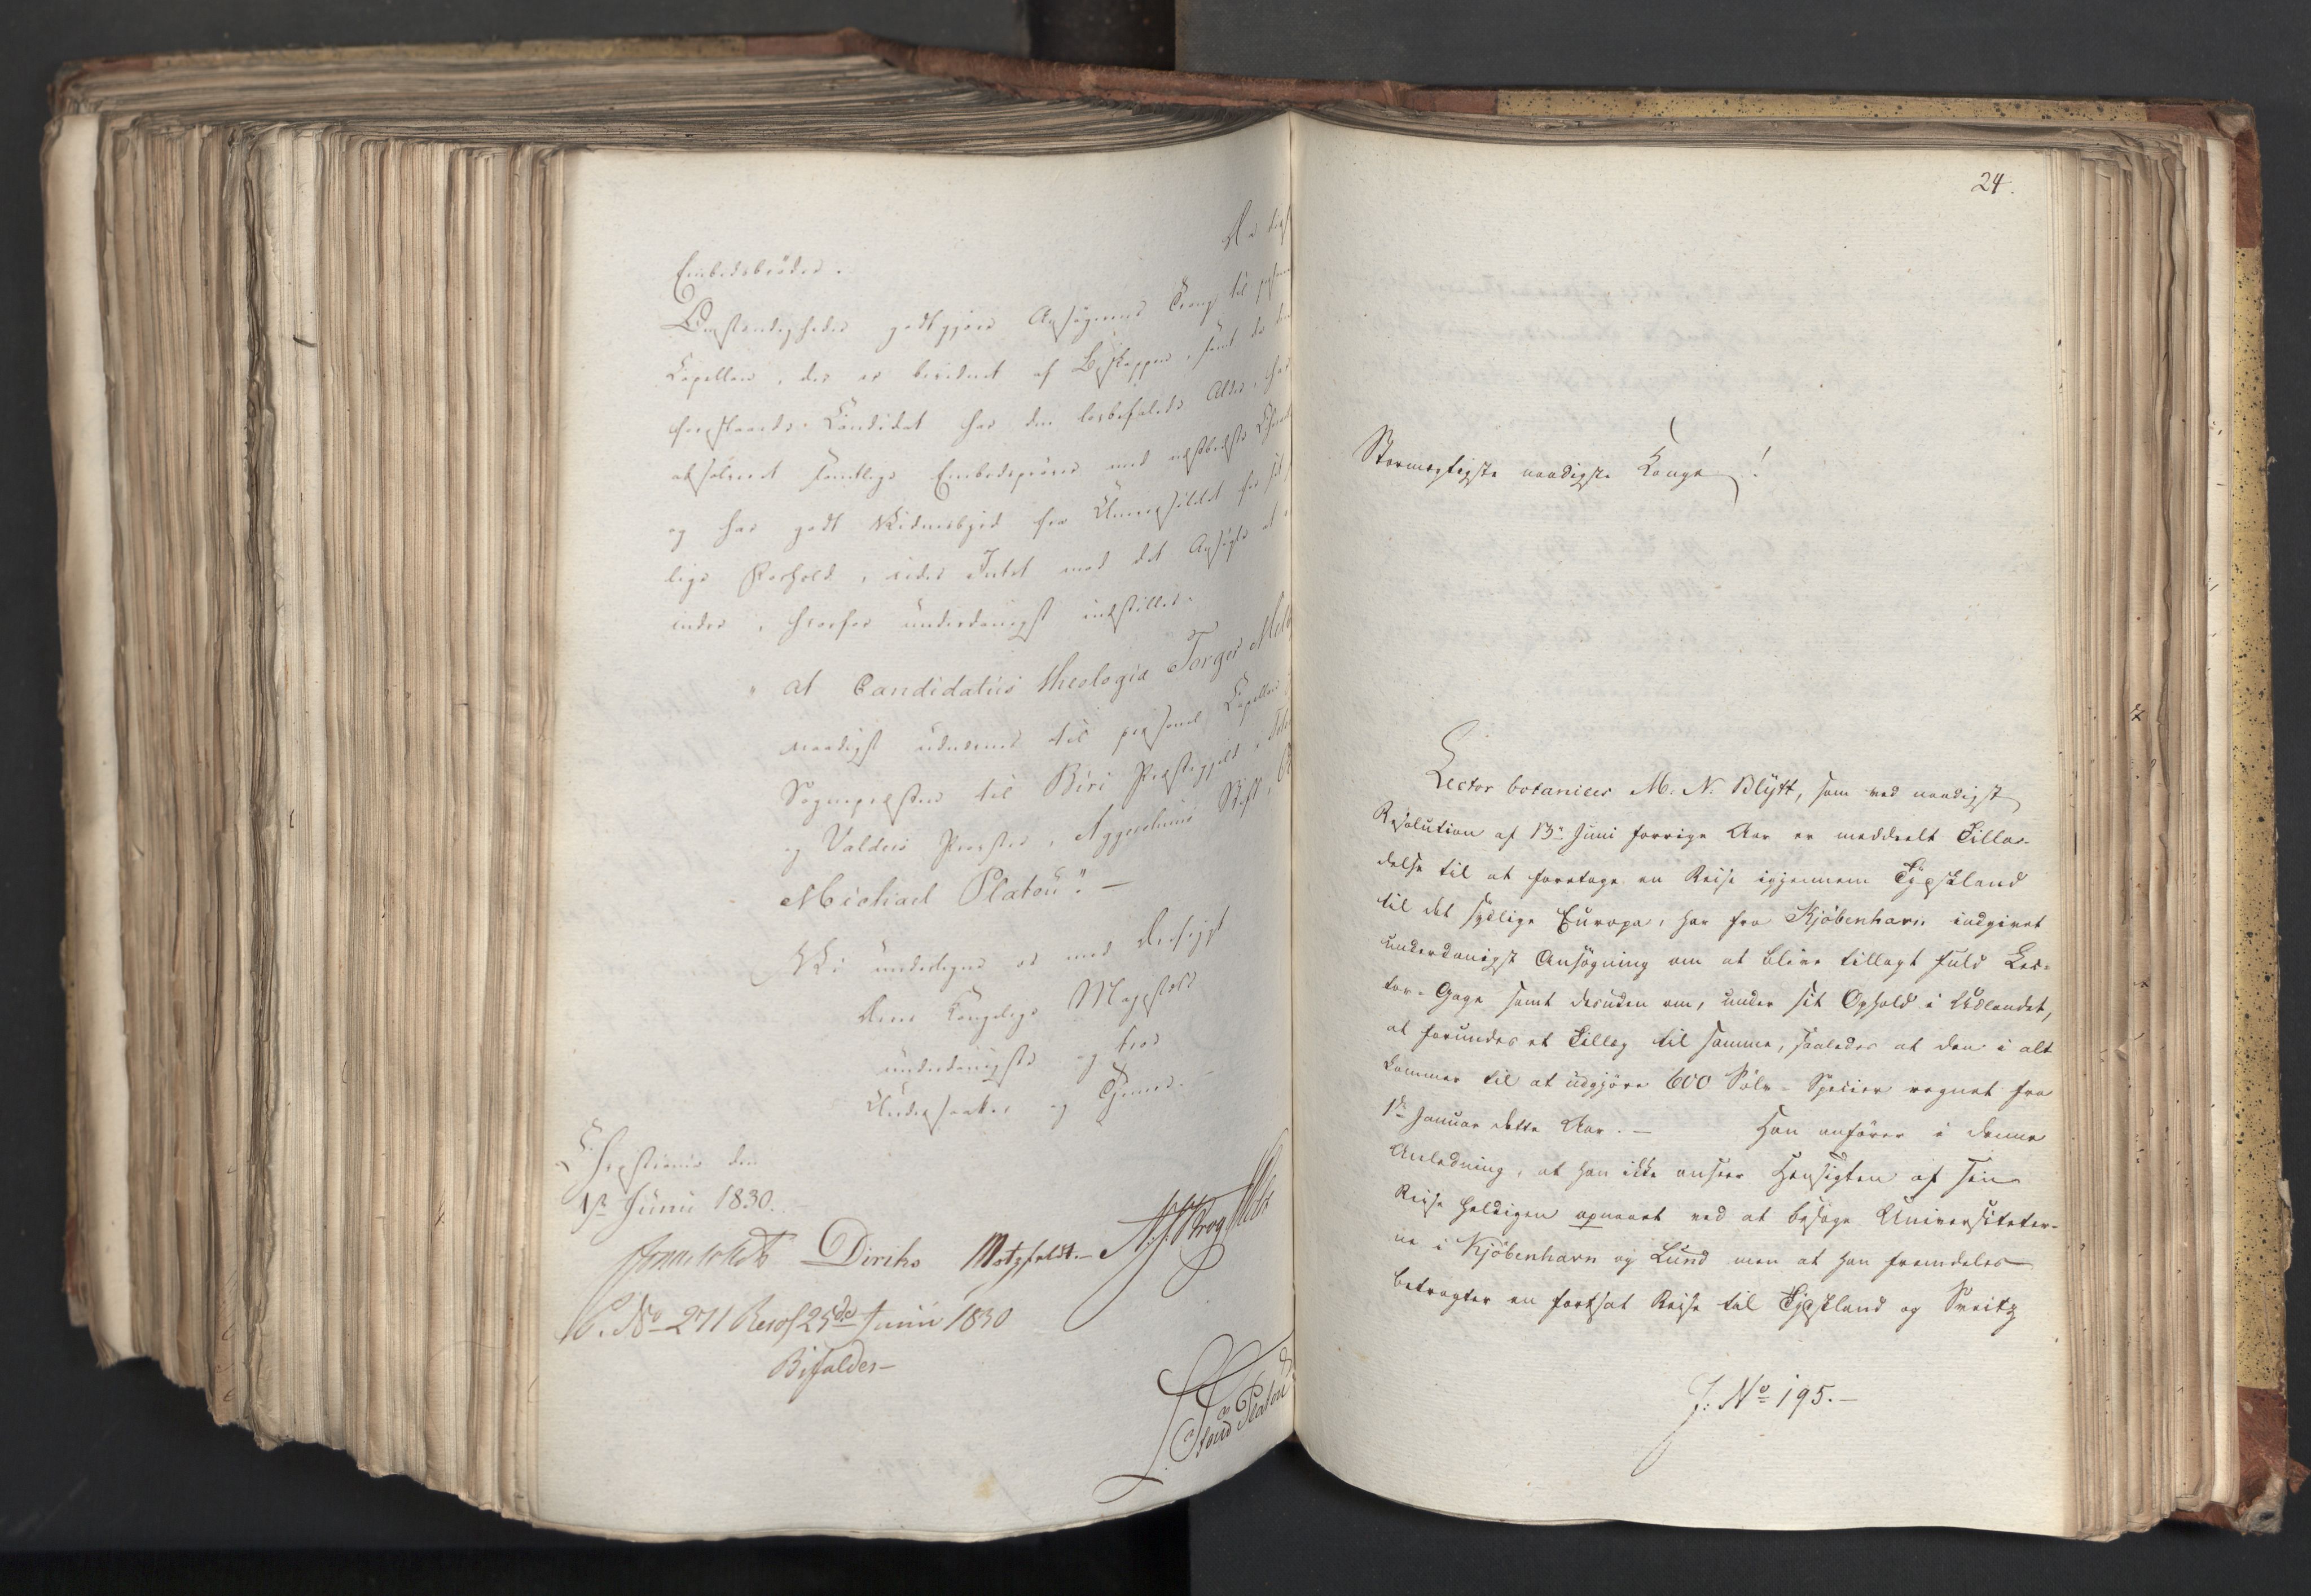 Da disse
Embedsbrøder.
Omstændigheder godtgjøre Ansøgerens Trang til personel
Capellan, der er bevidnet af Biskoppen, samt da den
foreslaaede Candidat har den lovbefalede Alder, har
absolveret samtlige Embedsprøver med næstbedste Charac
og har godt Vidnesbyrd fra Universitetet for sit
lige Forhold, vides Intet mod det Ansøgte at er
indre, hvorfor underdanigst indstilles:
"at Candidatus theologiæ Torger
naadigst udnævnes til personel Capellan
Sognepræsten til Biri Præstegjeld, Toten
og Valders Provstie, Aggershuus Stift,
Michael Platou". —
Vi undertegne os med Ærefrygt
Deres Kongelige Majestæts
underdanigste og troe
Undersaatter og Tjenere. —
Christiania den
1ste Junii 1830.
Diriks Motzfeldt. — Krog
P. No 271 Resol 25de Junii 1830
Bifaldes —
Platou
24.
Stormægtigste naadigste Konge!
Lector botanices M. N. Blytt, som ved naadigst
Resolution af 13de Juni forrige Aar er meddeelt Tilla-
delse til at foretage en Reise igjennem Tydskland
til det sydlige Europa, har fra Kjøbenhavn indgivet
underdanigst Ansøgning om at blive tillagt fuld Lec-
tor-Gage samt desuden om, under sit Ophold i Udlandet,
at forundes et Tillæg til samme, saaledes at den i alt
kommer til at udgjøre 600 Sølv-Species regnet fra
1ste Januar dette Aar. — Han anfører i denne
Anledning, at han ikke anseer Hensigten af sin
Reise heldigen opnaaet ved at besøge Universiteter-
ne i Kjøbenhavn og Lund men at han fremdeles
betragter en fortsat Reise til Tydskland og Sveitz
J: No 195. —